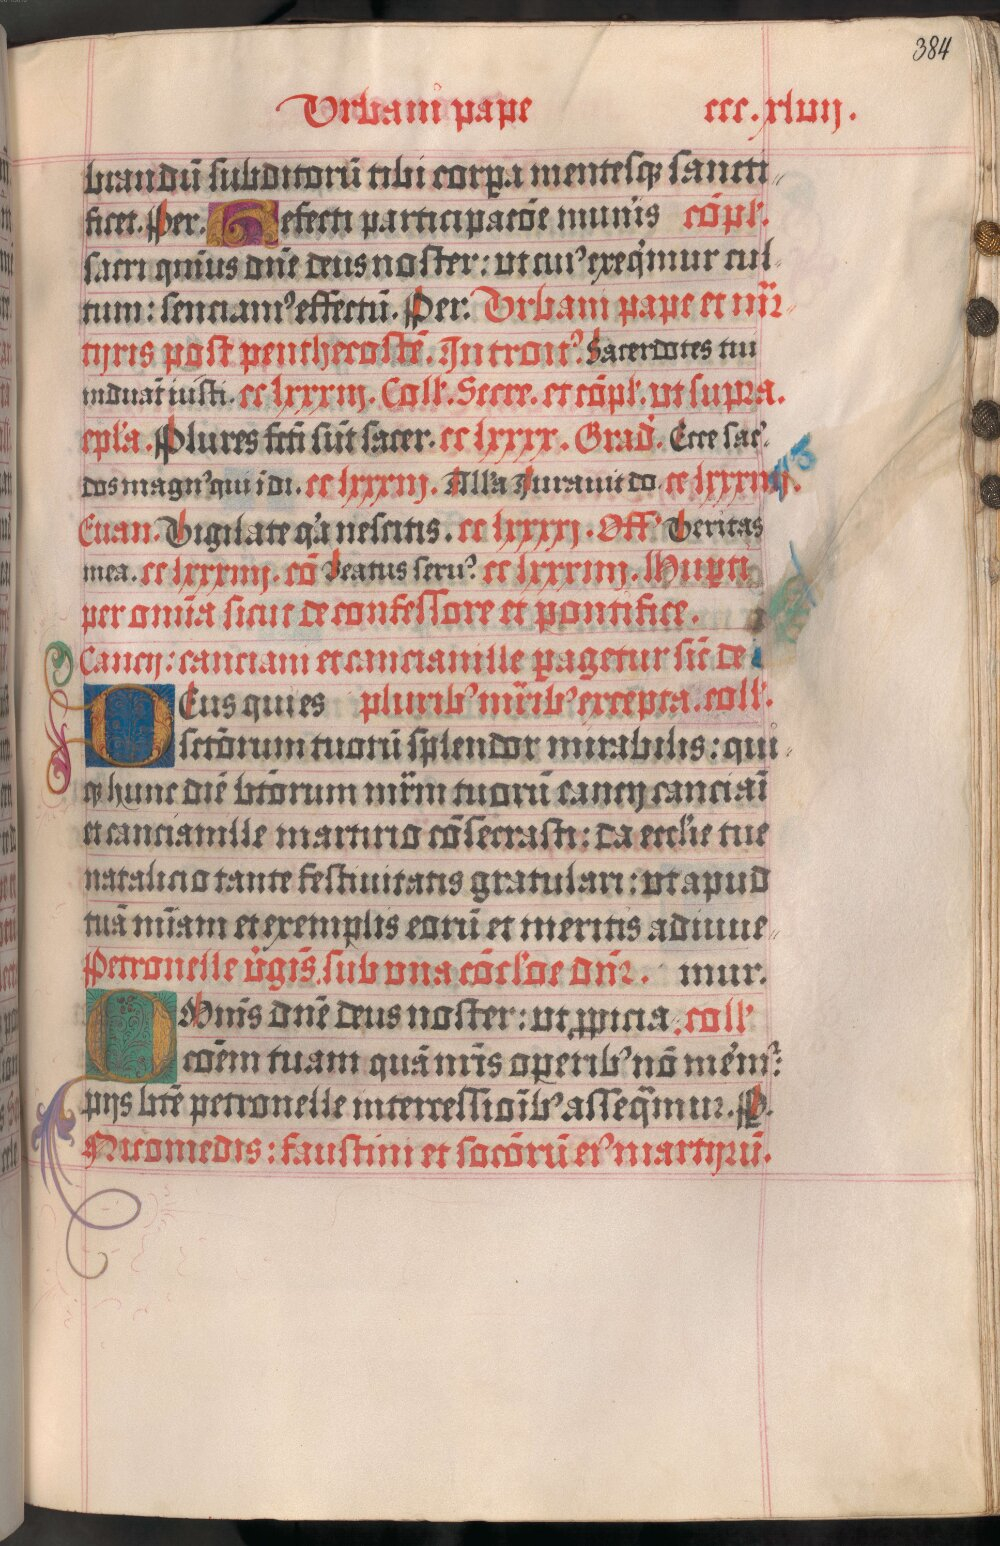 384
Urbani pape ccc.xlvij.
brandū subditorū tibi corpa mentesqȝ sancti
ficet. Per. Refecti participacōe munis cōpl'.
sacri quis dn̄e deus noster: ut cui' exeq̄mur cul
tum: senciam' effectū. Per. Urbani pape et mr̄
tijris post penthecostē. Introit' Sacerdotes tui
induāt iusti. cc lxxxiij. Coll'. Secre. et cōpl'. ut supra.
epl'a. Plures fc̄ti sūt sacer. cc lxxxx. Grad'. Ecce sac'
dos magn' qui ī di. cc lxxxiij. All'a Jurauit do. cc lxxxiiij.
Euan. Vigilate q'a nescitis. cc lxxxxj. Off' Veritas
mea. cc lxxxiiij. cō Beatus seru' cc lxxxiiij.
per om̄ia sicut de confessore et pontifice.
Cancij: canciani et cancianille pagetur sic̄ de
Deus quies plurib' mr̄ib' excepta. coll'.
sctōrum tuorū splendor mirabilis: qui
hunc diē btōrum mr̄m tuorū cancij canciāi
et cancianille martirio cōsecrasti: da eccl'ie tue
natalicio tante festiuitatis gratulari: ut apud
tuā mīam et exemplis eorū et meritis adiuue
Petronelle v̄gis̄. sub una cōcl'oe dn̄r. mur.
Omis̄ dn̄e deus noster: ut ppicia coll'
cōem tuam quā nr̄is operib' nō mem'
pijs btē petronelle intercessiōib' asseq̄mur. P.
Nicomedis: faustini et sociōrū ei' martijrū.